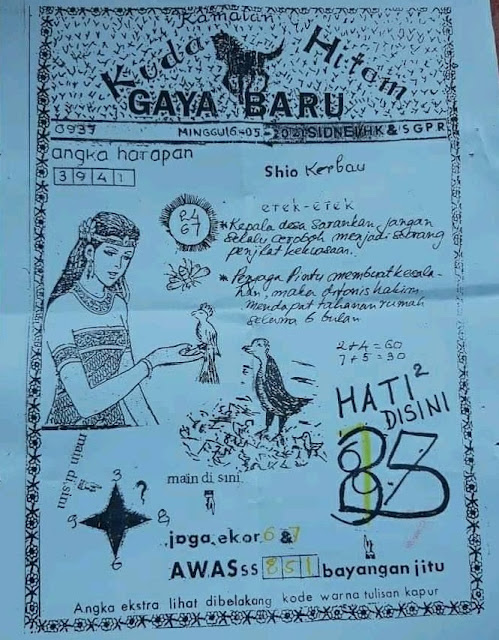 Ramalan
Kuda Hitam
GAYA BARU
0937
MINGGU 16-05-2021 SIDNEI/HK & SGPR
angka harapan
3941
Shio Kerbau
erek-erek
*Kepala desa sarankan, jangan
selalu ceroboh menjadi seorang
penjilat kekuasaan.
*Penjaga Pintu membuat kesala-
han, maka divonis hakim
mendapat tahanan rumah
selama 6 bulan
67
2+4=60
7+5=30
HATI²
DISINI
main disini
3
?
9
8
6
main di sini.
jaga ekor 6 & 7
AWASss 851 bayangan jitu
Angka ekstra lihat dibelakang kode warna tulisan kapur